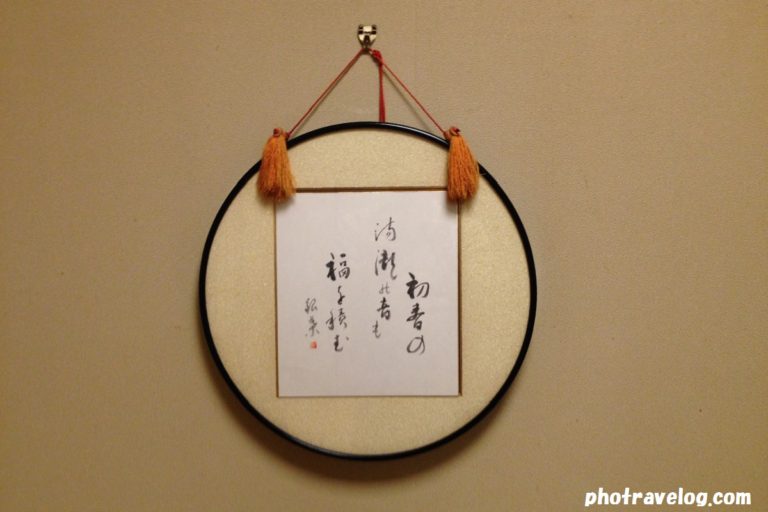 初春の
湯瀧の音も
福を積む
photravelog.com